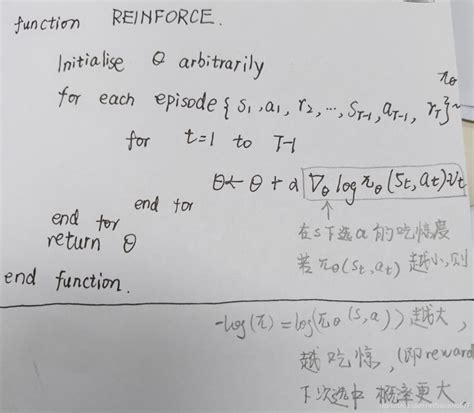 function REINFORCE.
Initialise θ arbitrarily
for each episode { s1, a1, r2, ..., sT-1, aT-1, rT } ~ πθ
for t=1 to T-1
θ ← θ + α ∇θ log πθ (St, at) vt
end for
end for
return θ
end function.
在s下选a的吃惊度
若 πθ(st, at) 越小, 则
-log(π) = log(πθ (s,a)) 越大,
越吃惊, (即reward
下次选中 概率更大